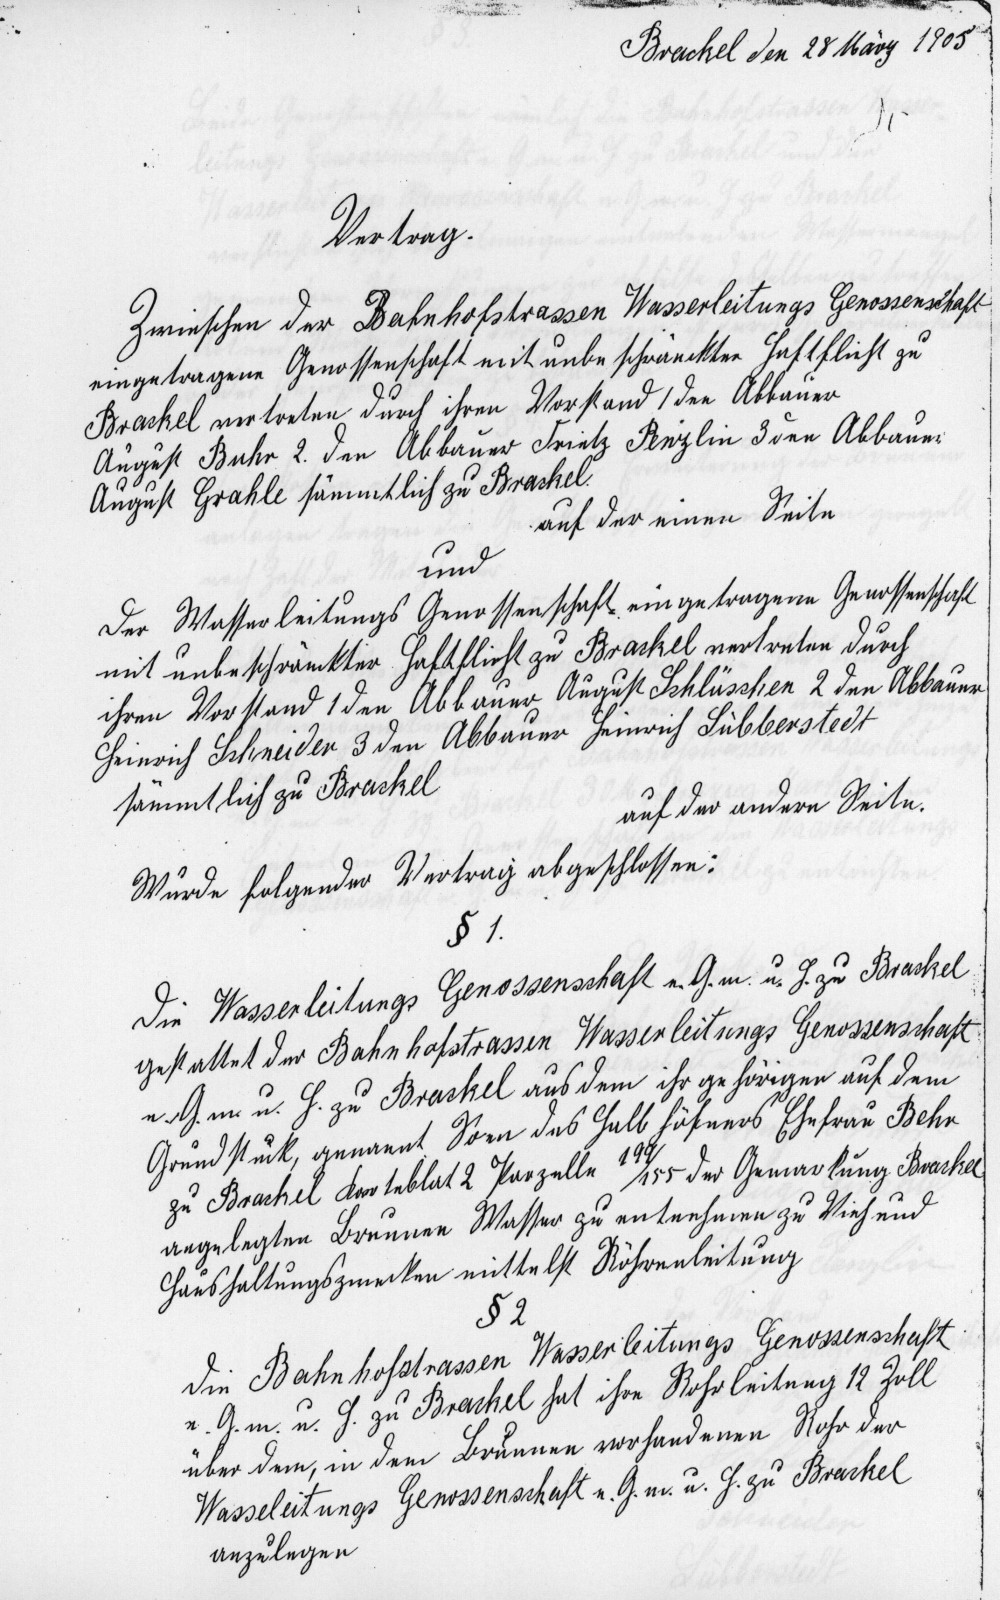 Brackel den 28 März 1905
Vertrag.
Zwieschen der Bahnhofstrassen Wasserleitungs Genossenschaft
eingetragene Genossenschaft mit unbeschränckter Haftflicht zu
Brackel vertreten durch ihren Vorstand 1 den Abbauer
August Buhr 2. den Abbauer Frietz Penzlin 3 den Abbauer
August Grahle sämmtlich zu Brackel.
auf der einen Seite
und
der Wasserleitungs Genossenschaft eingetragene Genossenschaft
mit unbeschränckter Haftflicht zu Brackel vertreten durch
ihren Vorstand 1 den Abbauer August Schlüschen 2 den Abbauer
Heinrich Schneider 3 den Abbauer Heinrich Lübberstedt
sämmtlich zu Brackel
auf der andern Seite.
Wurde folgender Vertrag abgeschlossen:
§ 1.
Die Wasserleitungs Genossenschaft e. G. m. u. H. zu Brackel
gestattet der Bahnhofstrassen Wasserleitungs Genossenschaft
e. G. m. u. H. zu Brackel aus dem ihr gehörigen auf dem
Grundstück, genannt Soen des Halbhöfners Ehefrau Behr
zu Brackel Karteblat 2 Parzelle 199/155 der Gemarkung Brackel
angelegten Brunnen Wasser zu entnehmen zu Vieh und
Haushaltungszwecken mittelst Röhrenleitung
§ 2
Die Bahnhofstrassen Wasserleitungs Genossenschaft
e. G. m. u. H. zu Brackel hat ihre Rohrleitung 12 Zoll
über dem, in dem Brunnen vorhandenen Rohr der
Wasseleitungs Genossenschaft e. G. m. u. H. zu Brackel
anzulegen